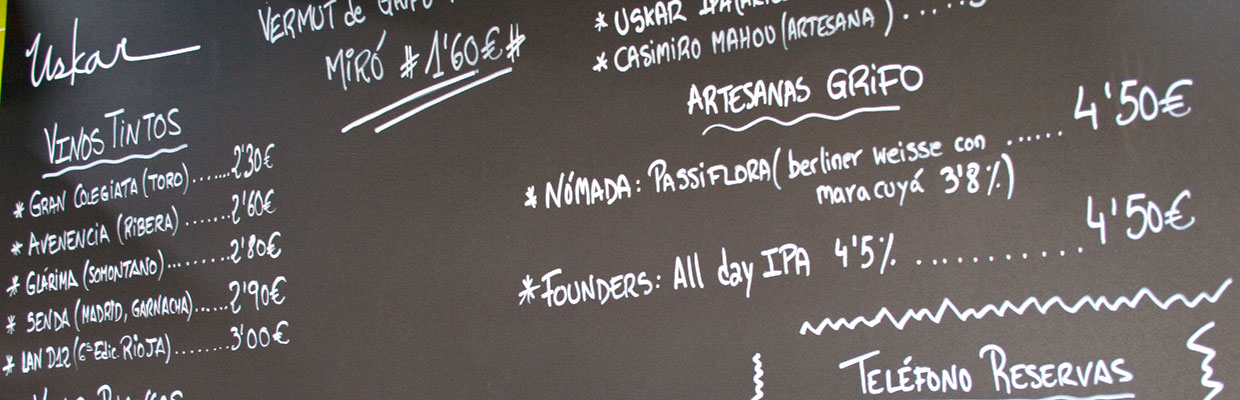 Uskar
VERMUT de GRIFO
MIRÓ #1'60€#
VINOS TINTOS
* GRAN COLEGIATA (TORO).......2'30€
* AVENENCIA (RIBERA).......2'60€
* GLÁRIMA (SOMONTANO)........2'80€
* SENDA (MADRID, GARNACHA)......2'90€
* LAN D12 (6ª Edic. RIOJA)........3'00€
* USKAR IPA
* CASIMIRO MAHOU (ARTESANA)
ARTESANAS GRIFO
* NÓMADA: PASSIFLORA (berliner weisse con ...... 4'50€
maracuyá 3'8%)
* FOUNDERS: All day IPA 4'5% ............ 4'50€
TELÉFONO RESERVAS